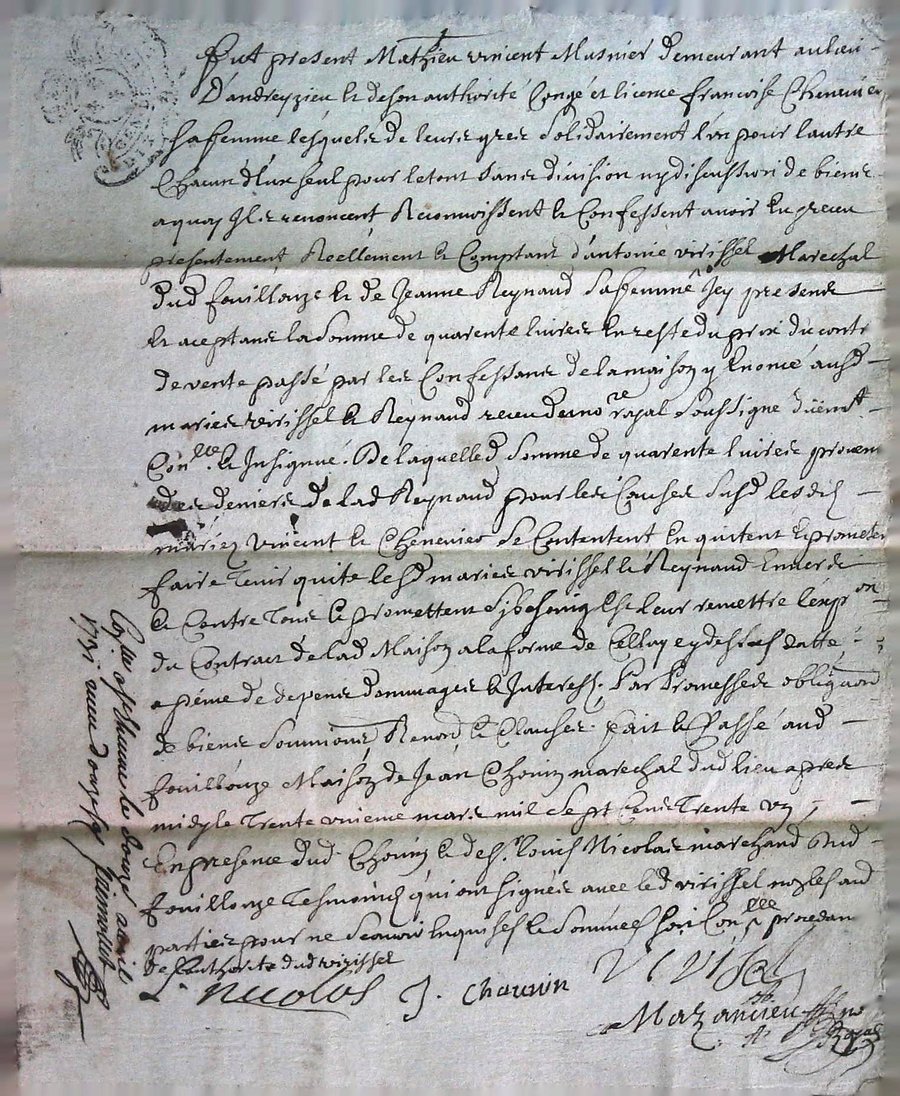 Fut present Mathieu vincent Musnier demeurant au lieu
D'andreyzieu et de son authorité Congé et licence francoise Chenevier
sa femme lesquels de leurs grez solidairement l'un pour l'autre
Chacun d'Eux seul pour le tout sans division ny discussion de biens
a quoy Ils renoncent Reconnoissent et Confessent avoir Eu et receu
presentement Reellement et Comptant d'antoine virissel Marechal
dud fouillouze et de Jeanne Reynaud sa femme Icy presents
Et aceptans la somme de quarente livres En reste du prix du contt
de vente passé par les Confessans de la maison y Enoncé ausd
maries virissel et Reynaud receu du no.re royal soussigne duëmt
Con.llé et Insignué. De laquelle d somme de quarente livres provenu
des deniers de lad Reynaud pour les Causes susd lesdits
mariez vincent et Chenevier se Contentent En quitent et promettent
faire tenir quite lesd maries virissel et Reynaud Envers
et Contre tous et promettent sy besoing Est leur remettre l'exp.on
du Contract de lad Maison a la forme de
a peine de depens dommages et Interess. Par Promesses obligaon
de biens soumions Renon.on et Clauses. fait et Passé aud
fouillouze Maison de Jean Chouin marechal dud lieu apres
midy le trente unieme mars mil sept cens trente un
En presence dud Chouin et de Sr. Louis Nicolas marchand dud
fouillouze tesmoins qui ont signés avec led virissel non lesaud
parties pour ne scavoir Enquises et sommées procedan
de l'authorité dud virissel
L. nicolas J. Chouvin Virisel
Mazandieu no.re Royal
Con.lle a St. Etienne le douze avril
1731. receu douze s.